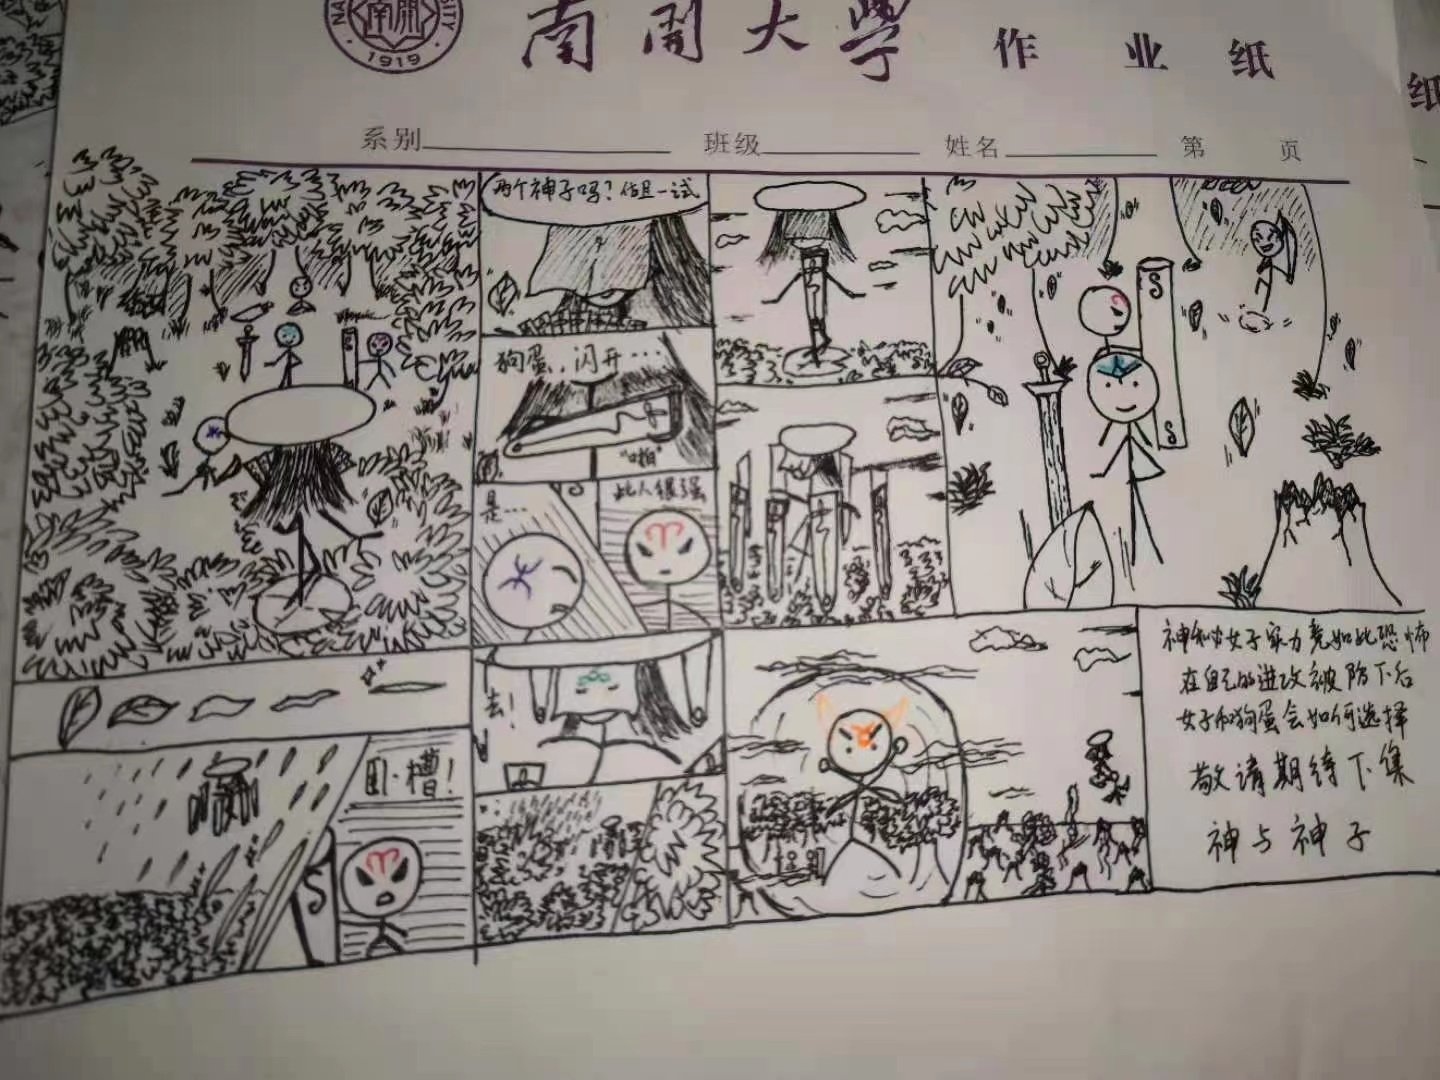 南開
1919
南開大學 作业纸
纸
系别 班级 姓名 第 页
两个神子吗？姑且一试
狗蛋，闪开…
"啪"
是…
此人很强
S
S
S
去！
卧·槽！
神秘女子实力竟如此恐怖
在自己的进攻被防下后
女子和狗蛋会如何选择
敬请期待下集
神与神子